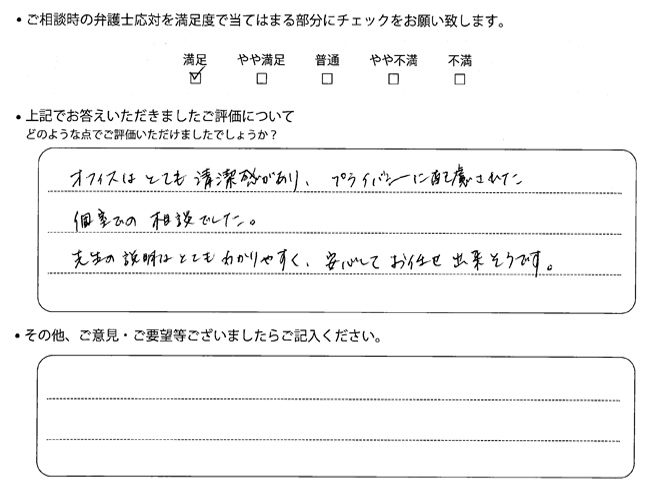 • ご相談時の弁護士応対を満足度で当てはまる部分にチェックをお願い致します。
満足 やや満足 普通 やや不満 不満
• 上記でお答えいただきましたご評価について
どのような点でご評価いただけましたでしょうか？
オフィスはとても清潔感があり、プライバシーに配慮された
個室での相談でした。
先生の説明はとてもわかりやすく、安心してお任せ出来そうです。
• その他、ご意見・ご要望等ございましたらご記入ください。